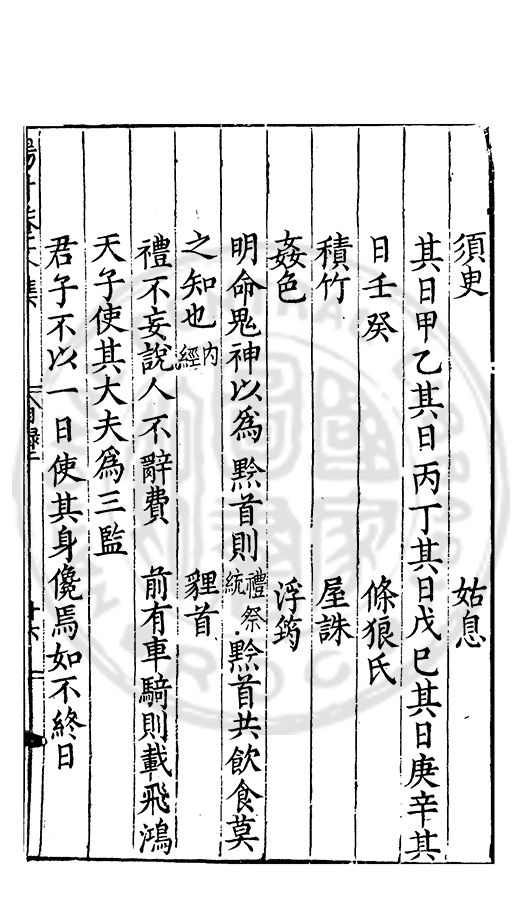 須臾　姑息
其日甲乙其日丙丁其日戊巳其日庚辛其
日壬癸　條狼氏
積竹　屋誅
姦色　浮筠
明命鬼神以爲黔首則禮祭統黔首共飲食莫
之知也內經　貍首
禮不妄說人不辭費　前有車騎則載飛鴻
天子使其大夫爲三監
君子不以一日使其身儳焉如不終日